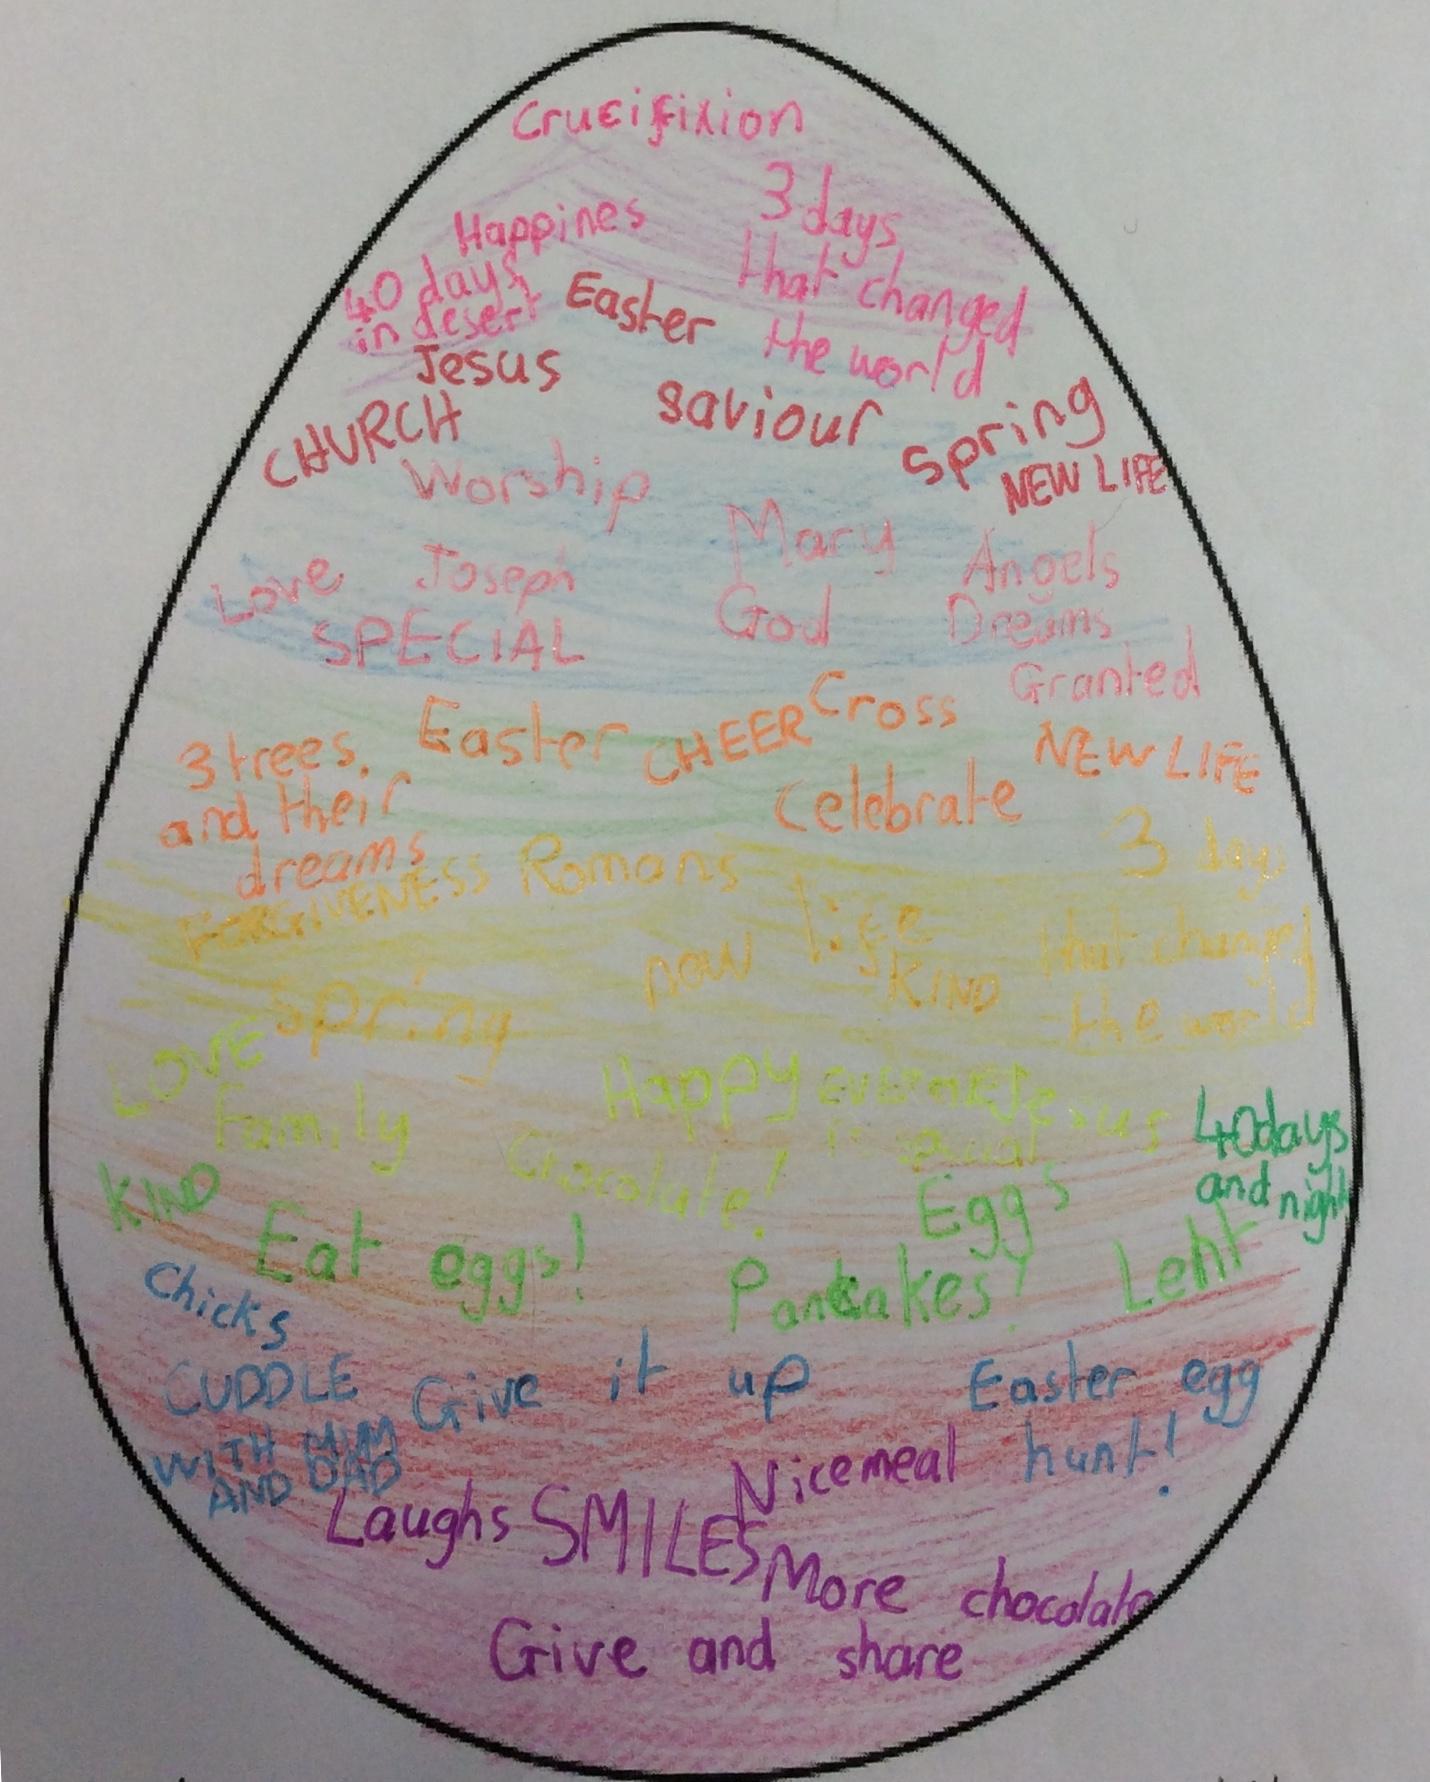 Crucifixion
Happines
3 days
that changed
the world
40 days
in desert
Easter
Jesus
saviour
CHURCH
Spring
NEW LIFE
Worship
Mary
Angels
Love
Joseph
God
Dreams
SPECIAL
Granted
Easter
CHEER
Cross
3 trees
and their
dreams
NEW LIFE
Celebrate
FORGIVENESS
Romans
3 days
that changed
the world
new life
KIND
Spring
LOVE
Family
Happy
Jesus
is special
Chocolate!
40days
and night
KIND
Eat eggs!
Eggs
Pancakes!
Lent
Chicks
CUDDLE
WITH MUM
AND DAD
Give it up
Easter egg
hunt!
Nice meal
Laughs
SMILES
More chocolate
Give and share